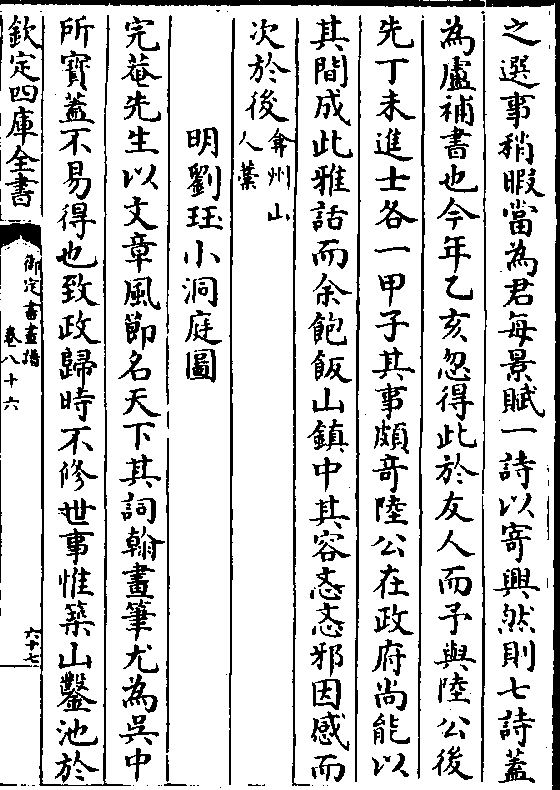 之選事稍暇當為君每景賦一詩以寄興然則七詩蓋
為盧補書也今年乙亥忽得此於友人而予與陸公後
先丁未進士各一甲子其事頗竒陸公在政府尚能以
其間成此雅話而余飽飯山鎮中其容恝恝邪因感而
次於後弇州山人藁
明劉珏小洞庭圖
完菴先生以文章風節名天下其詞翰畫筆尤為吳中
所寶蓋不易得也致政歸時不修世事惟築山鑿池於
欽定四庫全書
御定書畫譜
卷八十六
六十七